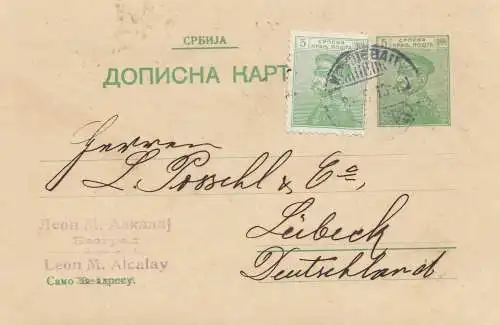 СРБИЈА
ДОПИСНА КАРТ
5 СРПСКА
КРАЉ. ПОШТА
5 СРПСКА
КРАЉ. ПОШТА
Herren
L. Possehl & Co,
Lübeck
Deutschland.
Леон М. Алкалај
Београд
Leon M. Alcalay
Само за адресу.